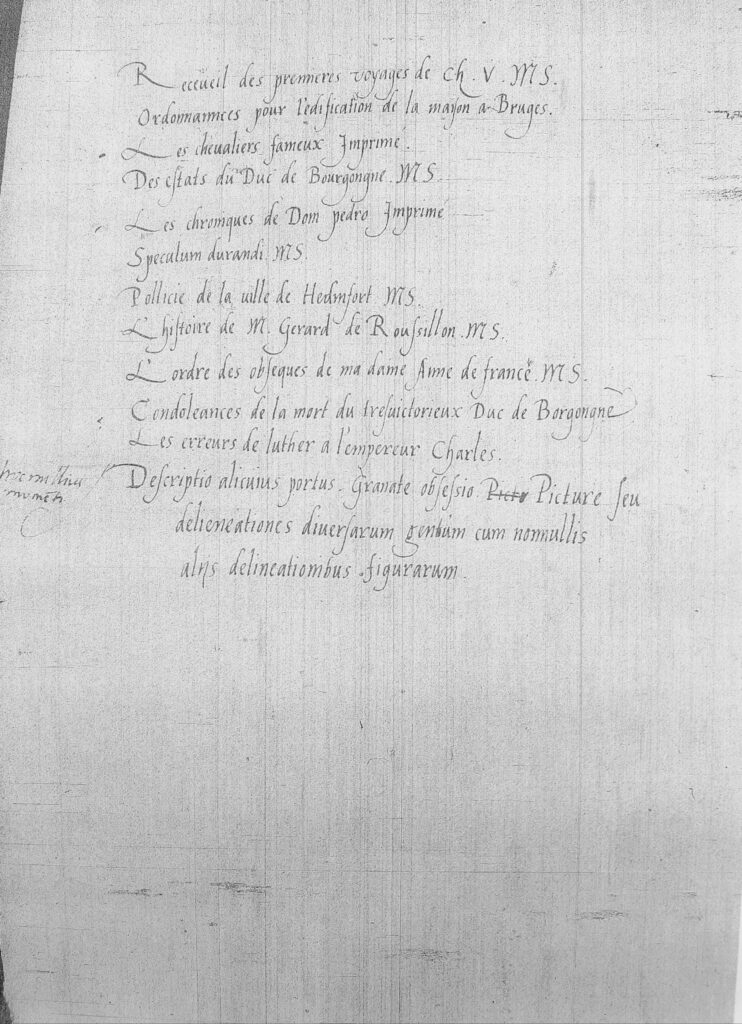 Receueil des premieres voyages de Ch. V. MS.
Ordonnannces pour l'edification de la mayson a Bruges.
Les cheualiers fameux Imprimé.
Des estats du Duc de Bourgongne. MS.
Les chroniques de Dom pedro Imprimé
Speculum durandi. MS.
Pollicie de la uille de Hedinfort MS.
L'histoire de M. Gerard de Roussillon. MS.
L'ordre des obseques de ma dame Anne de france. MS.
Condoleances de la mort du tresuictorieux Duc de Borgongne
Les erreurs de luther a l'empereur Charles.
Descriptio alicuius portus. Granate obsessio Picto Picture seu
delieneationes diuersarum gentium cum nonnullis
alijs delineationibus figurarum.